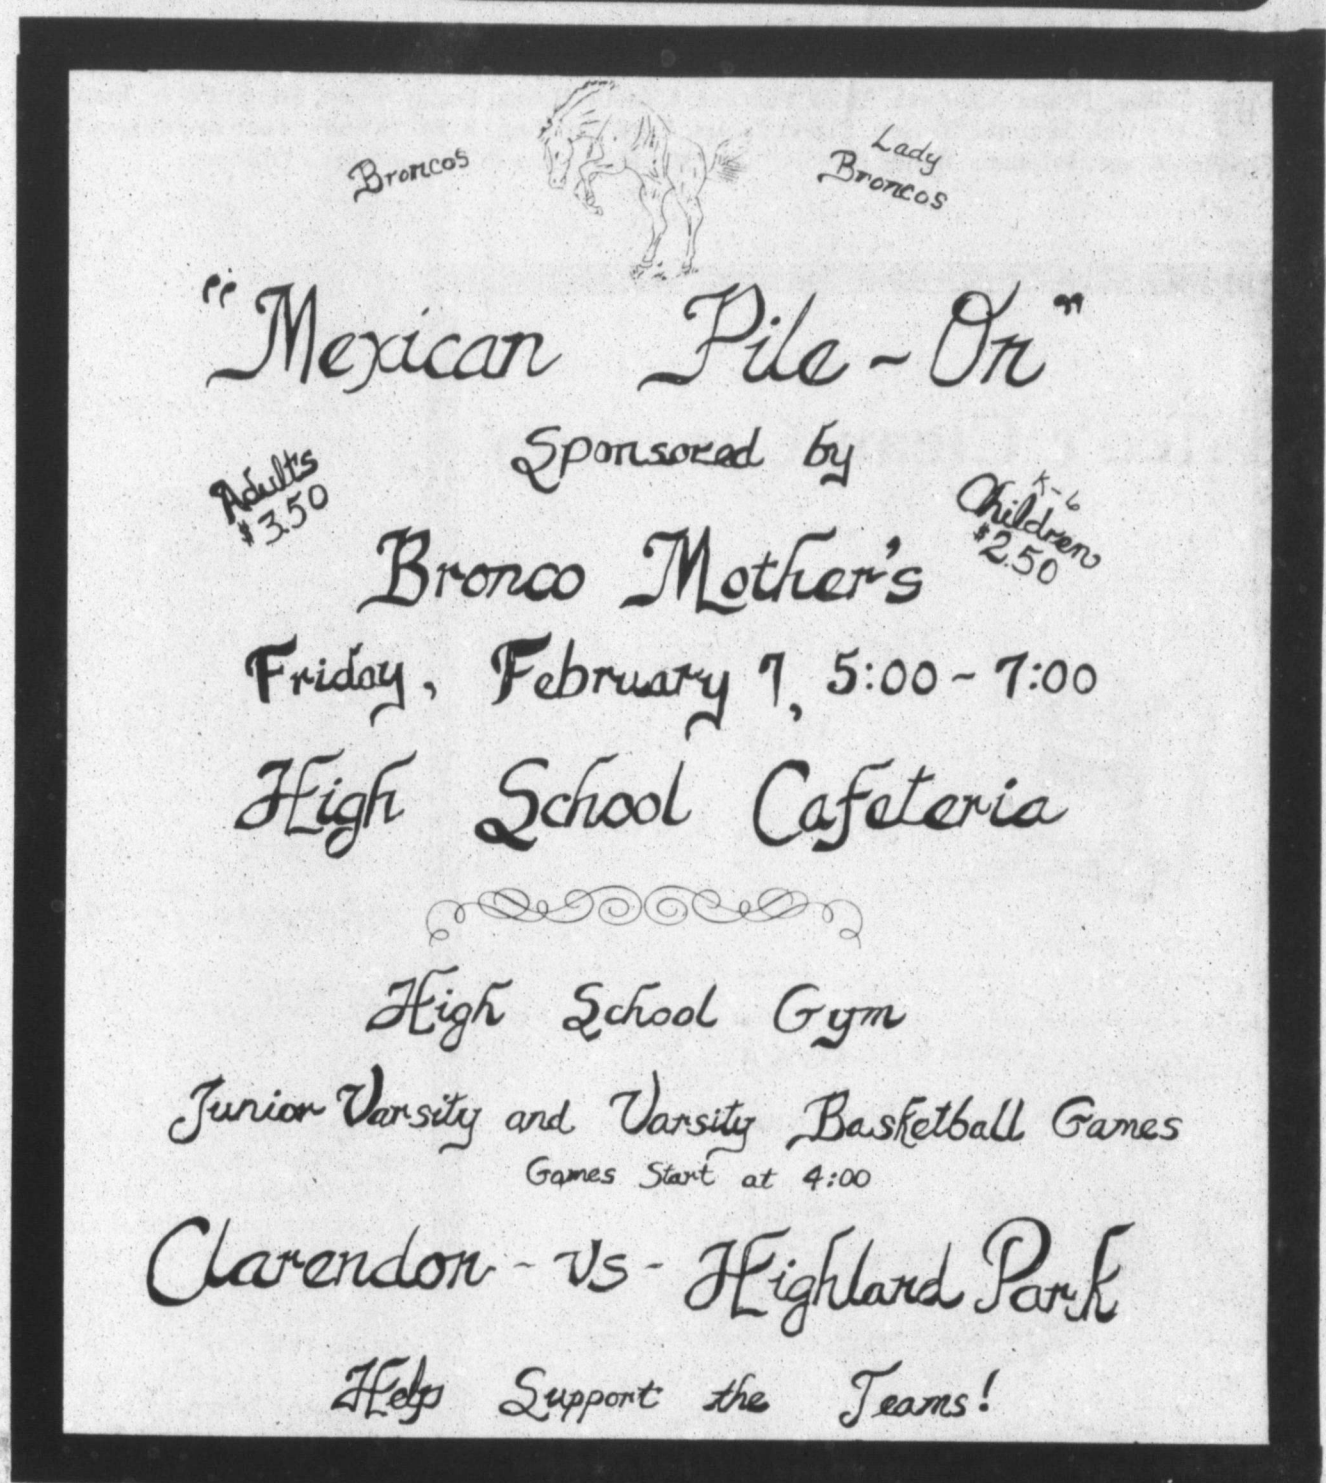 Broncos
Lady
Broncos
"Mexican Pile-On"
Sponsored by
Adults
$3.50
K-6
Children
$2.50
Bronco Mother's
Friday, February 7, 5:00-7:00
High School Cafeteria
High School Gym
Junior Varsity and Varsity Basketball Games
Games Start at 4:00
Clarendon - vs - Highland Park
Help Support the Teams!